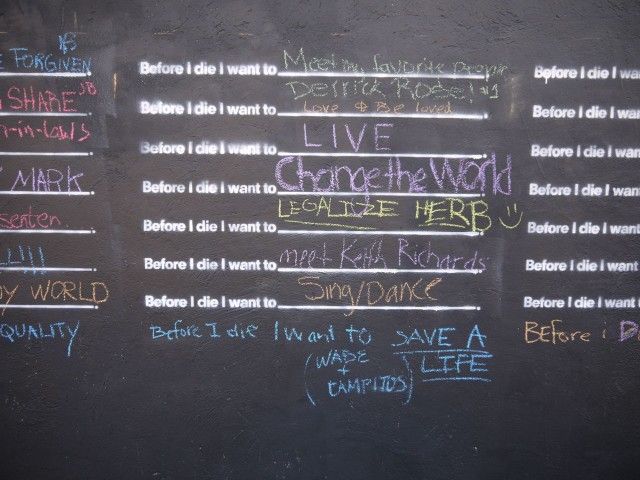 E FORGIVEN
SHARE
n-in-laws
MARK
WORLD
QUALITY
Before I die I want to Meet my favorite person
Derrick Rose! #1
Before I die I want to Love & Be loved
Before I die I want to LIVE
Before I die I want to Change the World
Before I die I want to LEGALIZE HERB
Before I die I want to meet Keith Richards
Before I die I want to Sing/Dance
Before I die I want to SAVE A
LIFE
(WADE
+
CAMPITOS)
Before I die I wa
Before I die I wan
Before I die I wan
Before I die I wan
Before I die I wan
Before I die I want
Before I die I want
BEfore i D